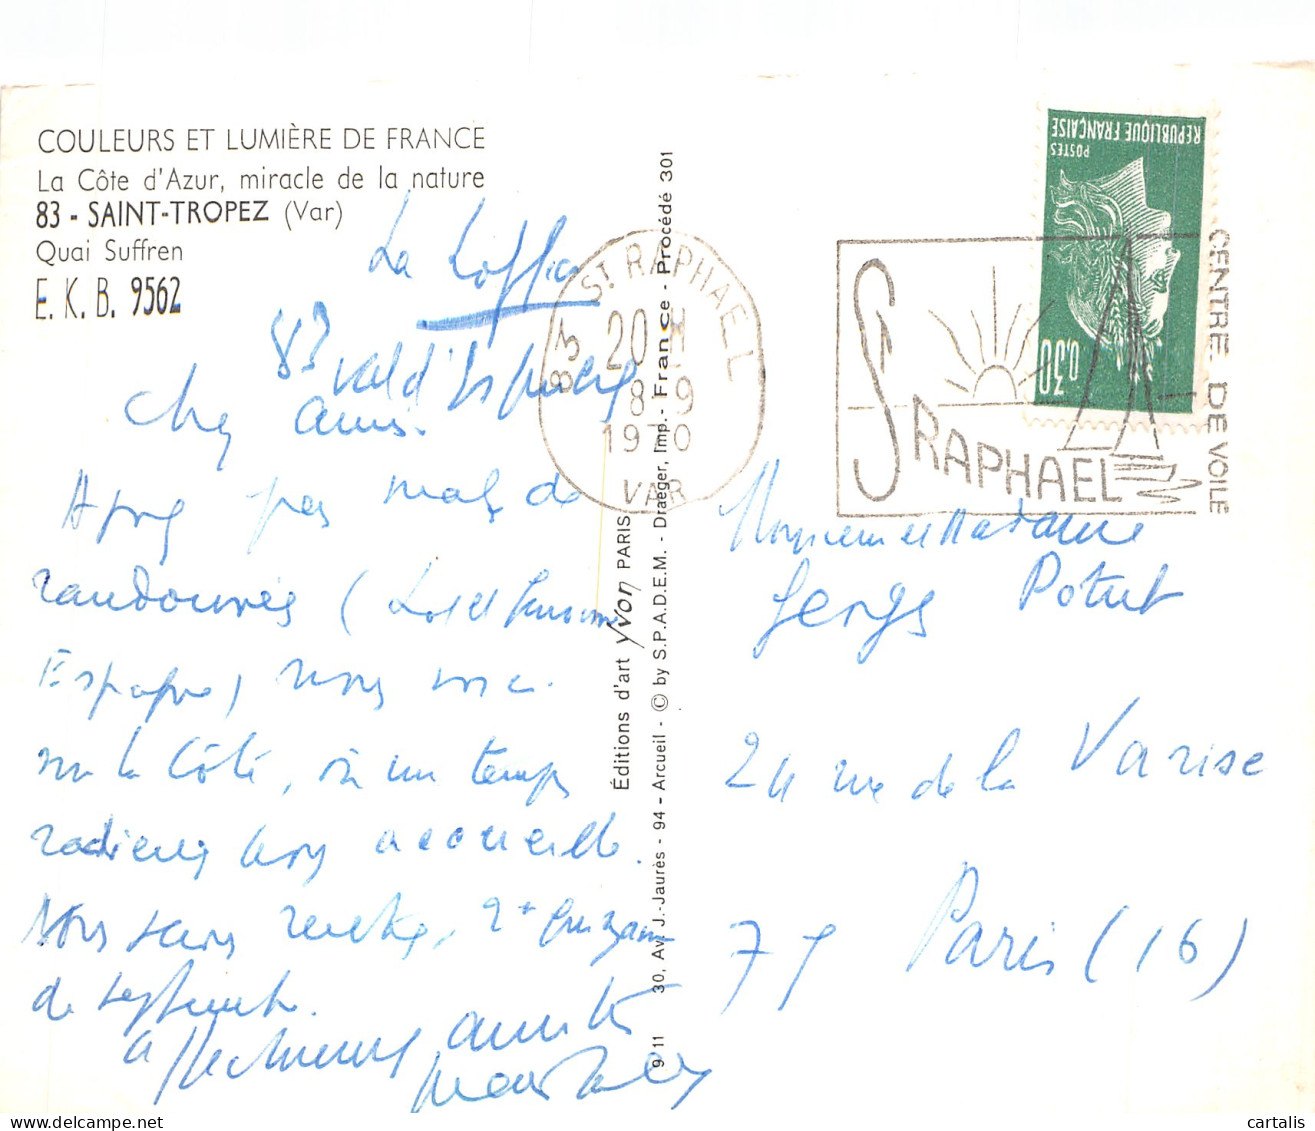 COULEURS ET LUMIÈRE DE FRANCE
La Côte d'Azur, miracle de la nature
83 - SAINT-TROPEZ (Var)
Quai Suffren
E. K. B. 9562
La
83 Val d'Esquières
Chers amis.
Après pas mal de
randonnées (Lot et Garonne
Espagne) nous voici
sur la Côte, où un temps
radieux nous accueille.
Nous serons rentrés, 2e quinzaine
de septembre.
Affectueuses amitiés
Éditions d'art Yvon PARIS
30, Av. J.-Jaurès - 94 - Arcueil - © by S.P.A.D.E.M. - Draeger, Imp. - France - Procédé 301
9 11
83 ST RAPHAEL
20 H
8-9
1970
VAR
ST RAPHAEL
CENTRE DE VOILE
REPUBLIQUE FRANÇAISE
POSTES
0,30
Monsieur et Madame
Georges Potut
24 rue de la Varise
75 Paris (16)
© cartalis